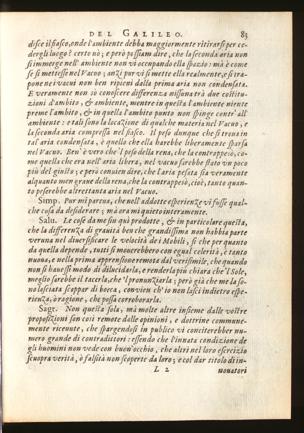 DEL GALILEO. 83
disce il fiasco, onde l'ambiente debba maggiormente ritirarsi per ce-
dergli luogo? certo nò; e però possiam dire, che la seconda aria non
si immerge nell'ambiente non vi occupando ella spazio: mà è come
se si mettesse nel Vacuo; anzi pur vi si mette ella realmente, e si tra-
pone nei vacui non ben ripieni dalla prima aria non condensata.
E veramente non sò conoscere differenza nissuna trà due costitu-
zioni d'ambito, & ambiente, mentre in questa l'ambiente niente
preme l'ambito, & in quella l'ambito punto non spinge contr'all'
ambiente: e tali sono la locazione di qualche materia nel Vacuo, e
la seconda aria compressa nel fiasco. Il peso dunque che si trova in
tal'aria condensata, è quello che ella harebbe liberamente sparsa
nel Vacuo. Ben'è vero che'l peso della rena, che la contrappesò, co-
me quella che era nell'aria libera, nel vacuo sarebbe stato un poco
più del giusto; e però convien dire, che l'aria pesata sia veramente
alquanto men grave della rena, che la contrappesò, cioè, tanto quan-
to peserebbe altrettanta aria nel Vacuo.
Simp. Pur mi pareva, che nell'addotte esperienze vi fusse qual-
che cosa da desiderare; mà ora mi quieto interamente.
Salu. Le cose da me fin quì prodotte, & in particolare questa,
che la differenza di gravità ben che grandissima non habbia parte
veruna nel diversificare le velocità dei Mobili, sì che per quanto
da quella depende, tutti si moverebbero con egual celerità, è tanto
nuova, e nella prima apprensione remota dal verisimile, che quando
non si havesse modo di dilucidarla, e renderla più chiara che'l Sole,
meglio sarebbe il tacerla, che'l pronunziarla; però già che me la so-
no lasciata scappar di bocca, convien ch'io non lasci indietro espe-
rienza, ò ragione, che possa corroborarla.
Sagr. Non questa sola, mà molte altre insieme dalle vostre
proposizioni son così remote dalle opinioni, e dottrine commune-
mente ricevute, che spargendosi in publico vi conciterebber nu-
mero grande di contradittori: essendo che l'innata condizione de
gli huomini non vede con buon'occhio, che altri nel loro esercizio
scuopra verità, ò falsità non scoperte da loro; e col dar titolo di in-
L 2 novatori